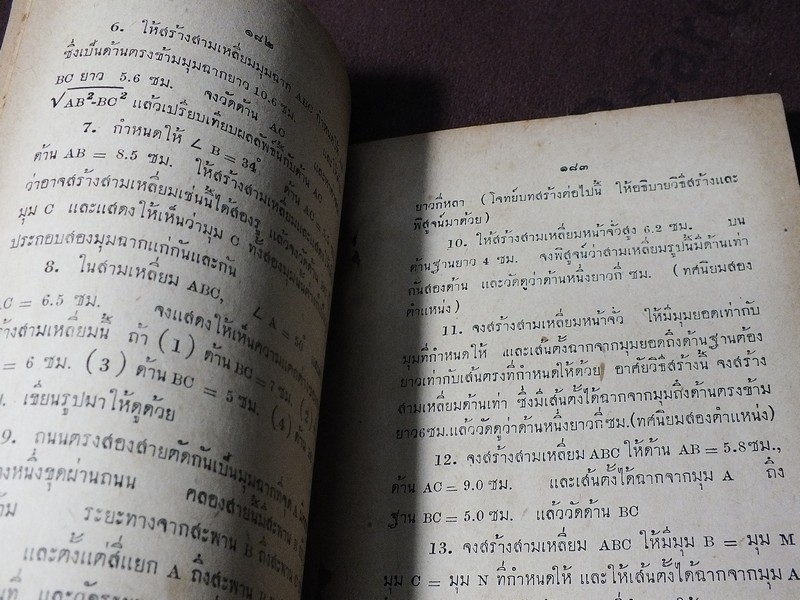 ๑๘๒
6. ให้สร้างสามเหลี่ยมมุมฉาก ABC
ซึ่งเป็นด้านตรงข้ามมุมฉากยาว 10.6 ซม.
BC ยาว 5.6 ซม. จงวัดด้าน AC
√AB²-BC² แล้วเปรียบเทียบผลลัพธ์นี้กับด้าน AC
7. กำหนดให้ ∠ B = 34° ด้าน AC
ด้าน AB = 8.5 ซม. ให้สร้างสามเหลี่ยม
ว่าอาจสร้างสามเหลี่ยมเช่นนี้ได้สองรูป แล้วจงวัดด้าน
มุม C และแสดงให้เห็นว่ามุม C ทั้งสองมุมนั้น
ประกอบสองมุมฉากแก่กันและกัน
8. ในสามเหลี่ยม ABC, ∠ A =
AC = 6.5 ซม. จงแสดงให้เห็นความ
สร้างสามเหลี่ยมนี้ ถ้า (1) ด้าน BC = 7 ซม. (2)
= 6 ซม. (3) ด้าน BC = 5 ซม. (4) ด้าน
เขียนรูปมาให้ดูด้วย
9. ถนนตรงสองสายตัดกันเป็นมุมฉากที่จุด A
หนึ่งขุดผ่านถนน คลองสายนี้มีสะพาน B
ระยะทางจากสะพาน B ถึงสะพาน
และตั้งแต่สี่แยก A ถึงสะพาน B
๑๘๓
ยาวกี่หลา (โจทย์บทสร้างต่อไปนี้ ให้อธิบายวิธีสร้างและ
พิสูจน์มาด้วย)
10. ให้สร้างสามเหลี่ยมหน้าจั่วสูง 6.2 ซม. บน
ด้านฐานยาว 4 ซม. จงพิสูจน์ว่าสามเหลี่ยมรูปนี้มีด้านเท่า
กันสองด้าน และวัดดูว่าด้านหนึ่งยาวกี่ ซม. (ทศนิยมสอง
ตำแหน่ง)
11. จงสร้างสามเหลี่ยมหน้าจั่ว ให้มีมุมยอดเท่ากับ
มุมที่กำหนดให้ และเส้นตั้งฉากจากมุมยอดถึงด้านฐานต้อง
ยาวเท่ากับเส้นตรงที่กำหนดให้ด้วย อาศัยวิธีสร้างนี้ จงสร้าง
สามเหลี่ยมด้านเท่า ซึ่งมีเส้นตั้งได้ฉากจากมุมถึงด้านตรงข้าม
ยาว 6 ซม. แล้ววัดดูว่าด้านหนึ่งยาวกี่ ซม. (ทศนิยมสองตำแหน่ง)
12. จงสร้างสามเหลี่ยม ABC ให้ด้าน AB = 5.8 ซม.,
ด้าน AC = 9.0 ซม. และเส้นตั้งได้ฉากจากมุม A ถึง
ฐาน BC = 5.0 ซม. แล้ววัดด้าน BC
13. จงสร้างสามเหลี่ยม ABC ให้มีมุม B = มุม M
มุม C = มุม N ที่กำหนดให้ และให้เส้นตั้งได้ฉากจากมุม A